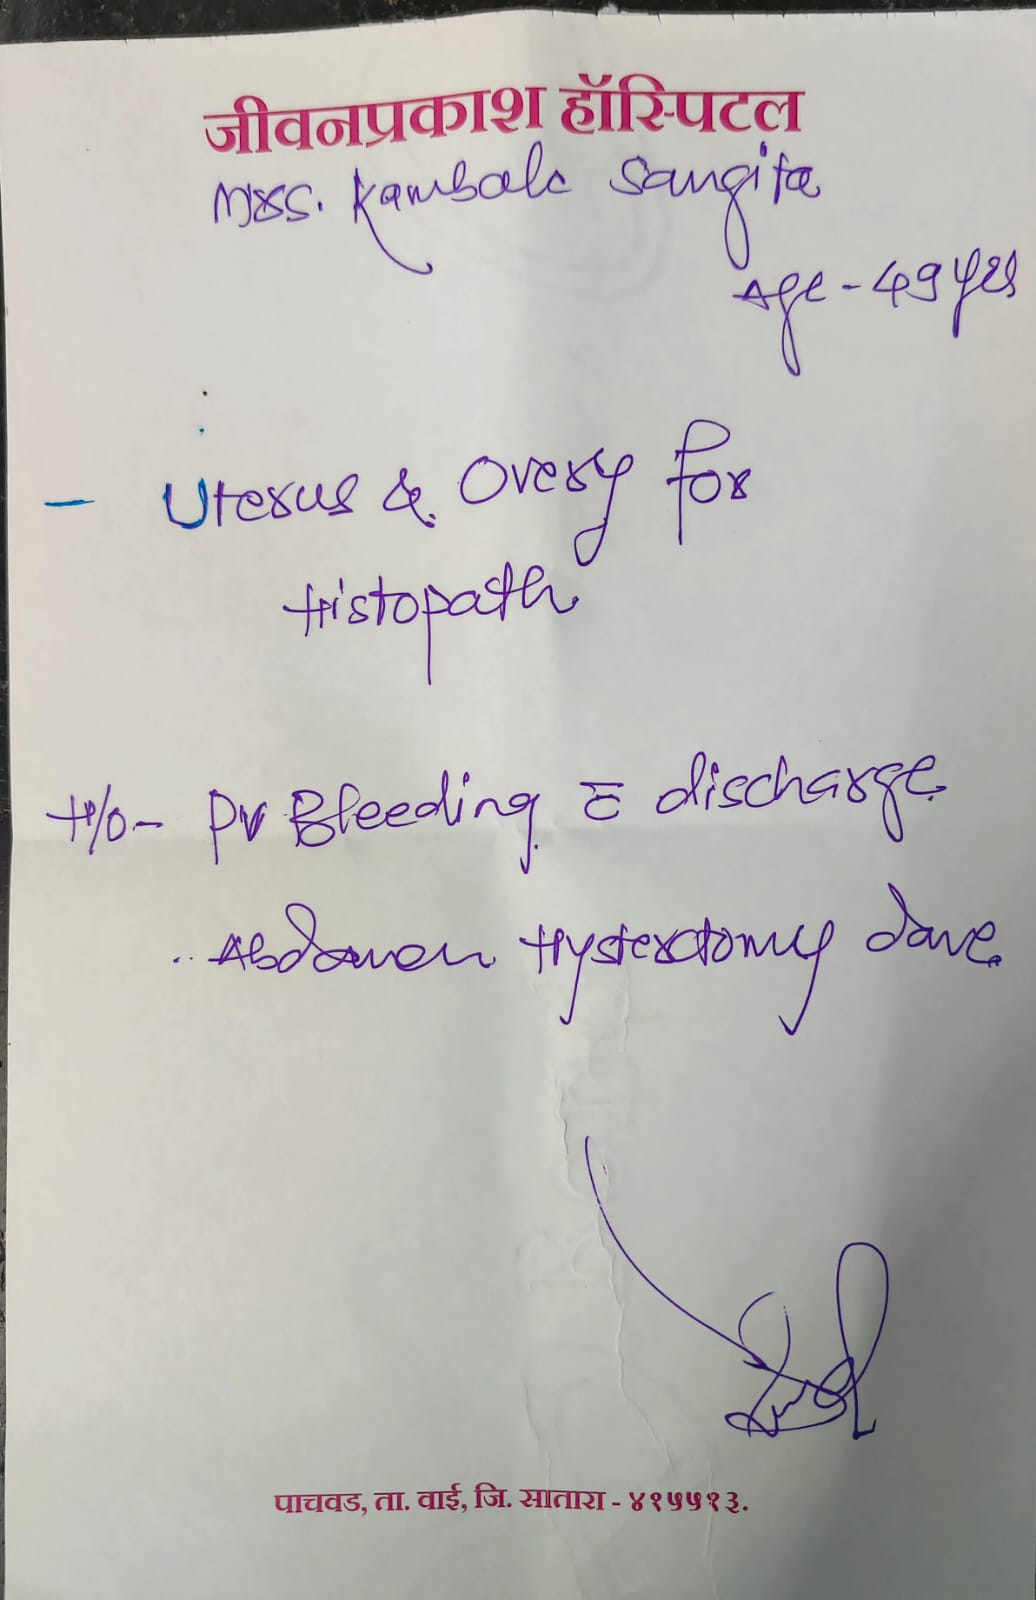 जीवनप्रकाश हॉस्पिटल
Mrs. Kambale Sangita
Age - 49 yrs
- Uterus & Overy for
Histopath
H/o - PV Bleeding c̄ discharge
Abdomen Hysterctomy done.
पाचवड, ता. वाई, जि. सातारा - ४१५५१३.